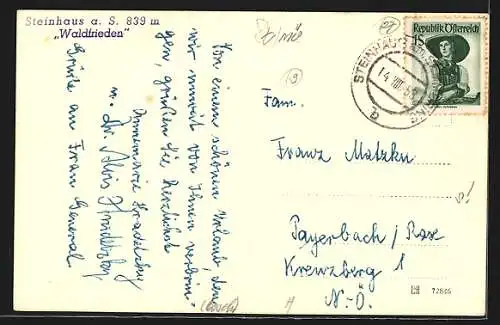 Steinhaus a. S. 839 m
„Waldfrieden"
Von einem schönen Urlaub, den
wir unweit von Ihnen verbrin-
gen, grüßen Sie herzlichst
Annemarie
u. Dr. Alois
Grüße an Frau General
Republik Österreich
1S
STEINHAUS
14. VIII. 
Fam.
Franz Matzku
Payerbach / Rax
Kreuzberg 1
N.-Ö.
72865